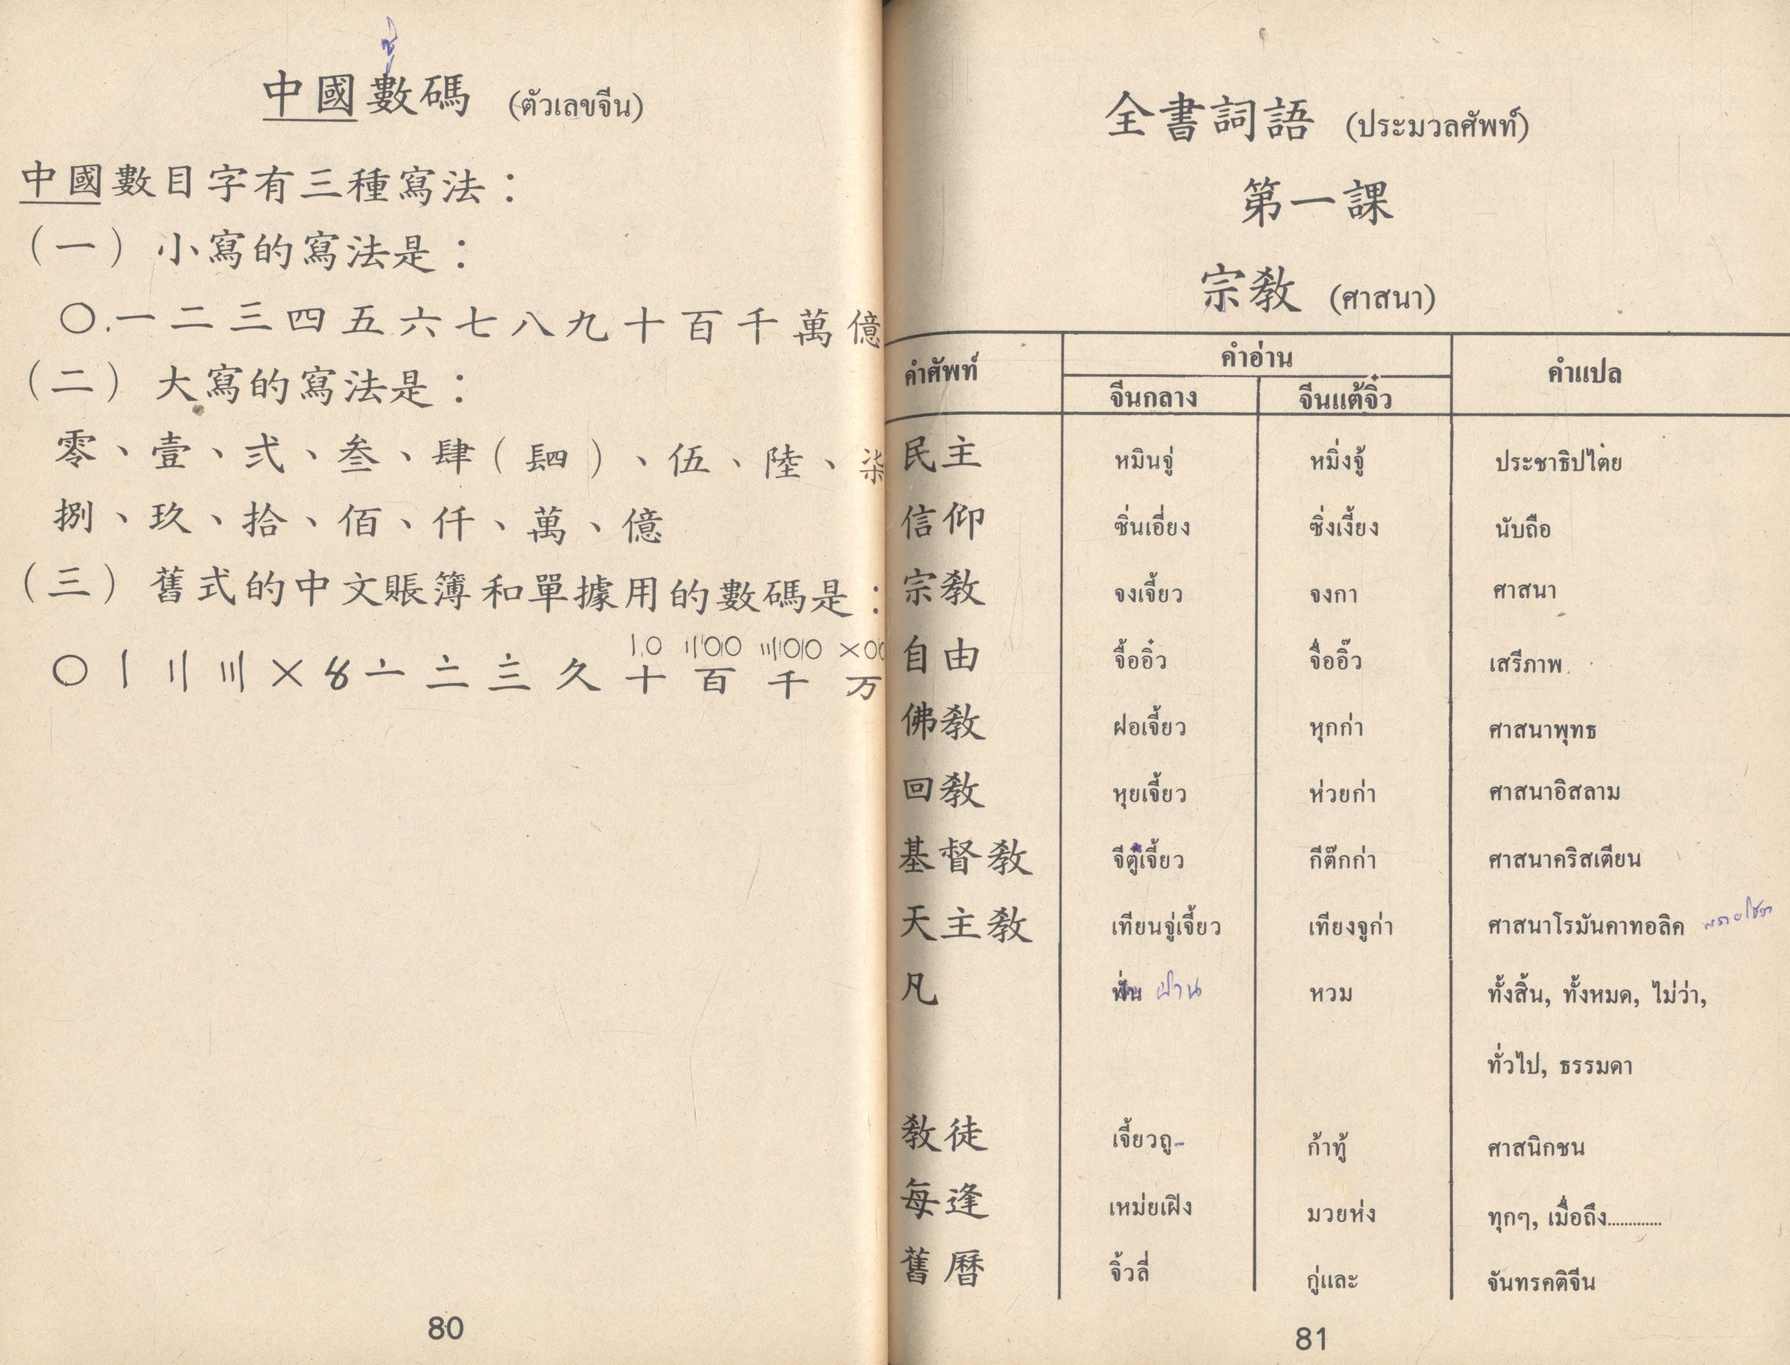 中國數碼 (ตัวเลขจีน)
中國數目字有三種寫法：
（一）小寫的寫法是：
〇一二三四五六七八九十百千萬億
（二）大寫的寫法是：
零、壹、弍、叁、肆（䦉）、伍、陸、柒
捌、玖、拾、佰、仟、萬、億
（三）舊式的中文賬簿和單據用的數碼是：
〡〇 〢〇〇 〣〇〇〇
〇〡〢〣〤〥〦〧〨〩十百千万
80
全書詞語 (ประมวลศัพท์)
第一課
宗教 (ศาสนา)
คำศัพท์ คำอ่าน คำแปล
จีนกลาง จีนแต้จิ๋ว
民主 หมินจู่ หมิ่งจู้ ประชาธิปไตย
信仰 ซิ่นเอี่ยง ซิ่งเงี้ยง นับถือ
宗教 จงเจี้ยว จงกา ศาสนา
自由 จื้ออิ๋ว จื่ออิ๊ว เสรีภาพ
佛教 ฝอเจี้ยว หุกก่า ศาสนาพุทธ
回教 หุยเจี้ยว ห่วยก่า ศาสนาอิสลาม
基督教 จีตูเจี้ยว กีต๊กก่า ศาสนาคริสเตียน
天主教 เทียนจู่เจี้ยว เทียงจูก่า ศาสนาโรมันคาทอลิค
凡 ฟั่น ฝาน หวม ทั้งสิ้น, ทั้งหมด, ไม่ว่า,
ทั่วไป, ธรรมดา
教徒 เจี้ยวถู ก้าทู้ ศาสนิกชน
每逢 เหม่ยเฝิง มวยห่ง ทุกๆ, เมื่อถึง.............
舊曆 จิ้วลี่ กู่และ จันทรคติจีน
81